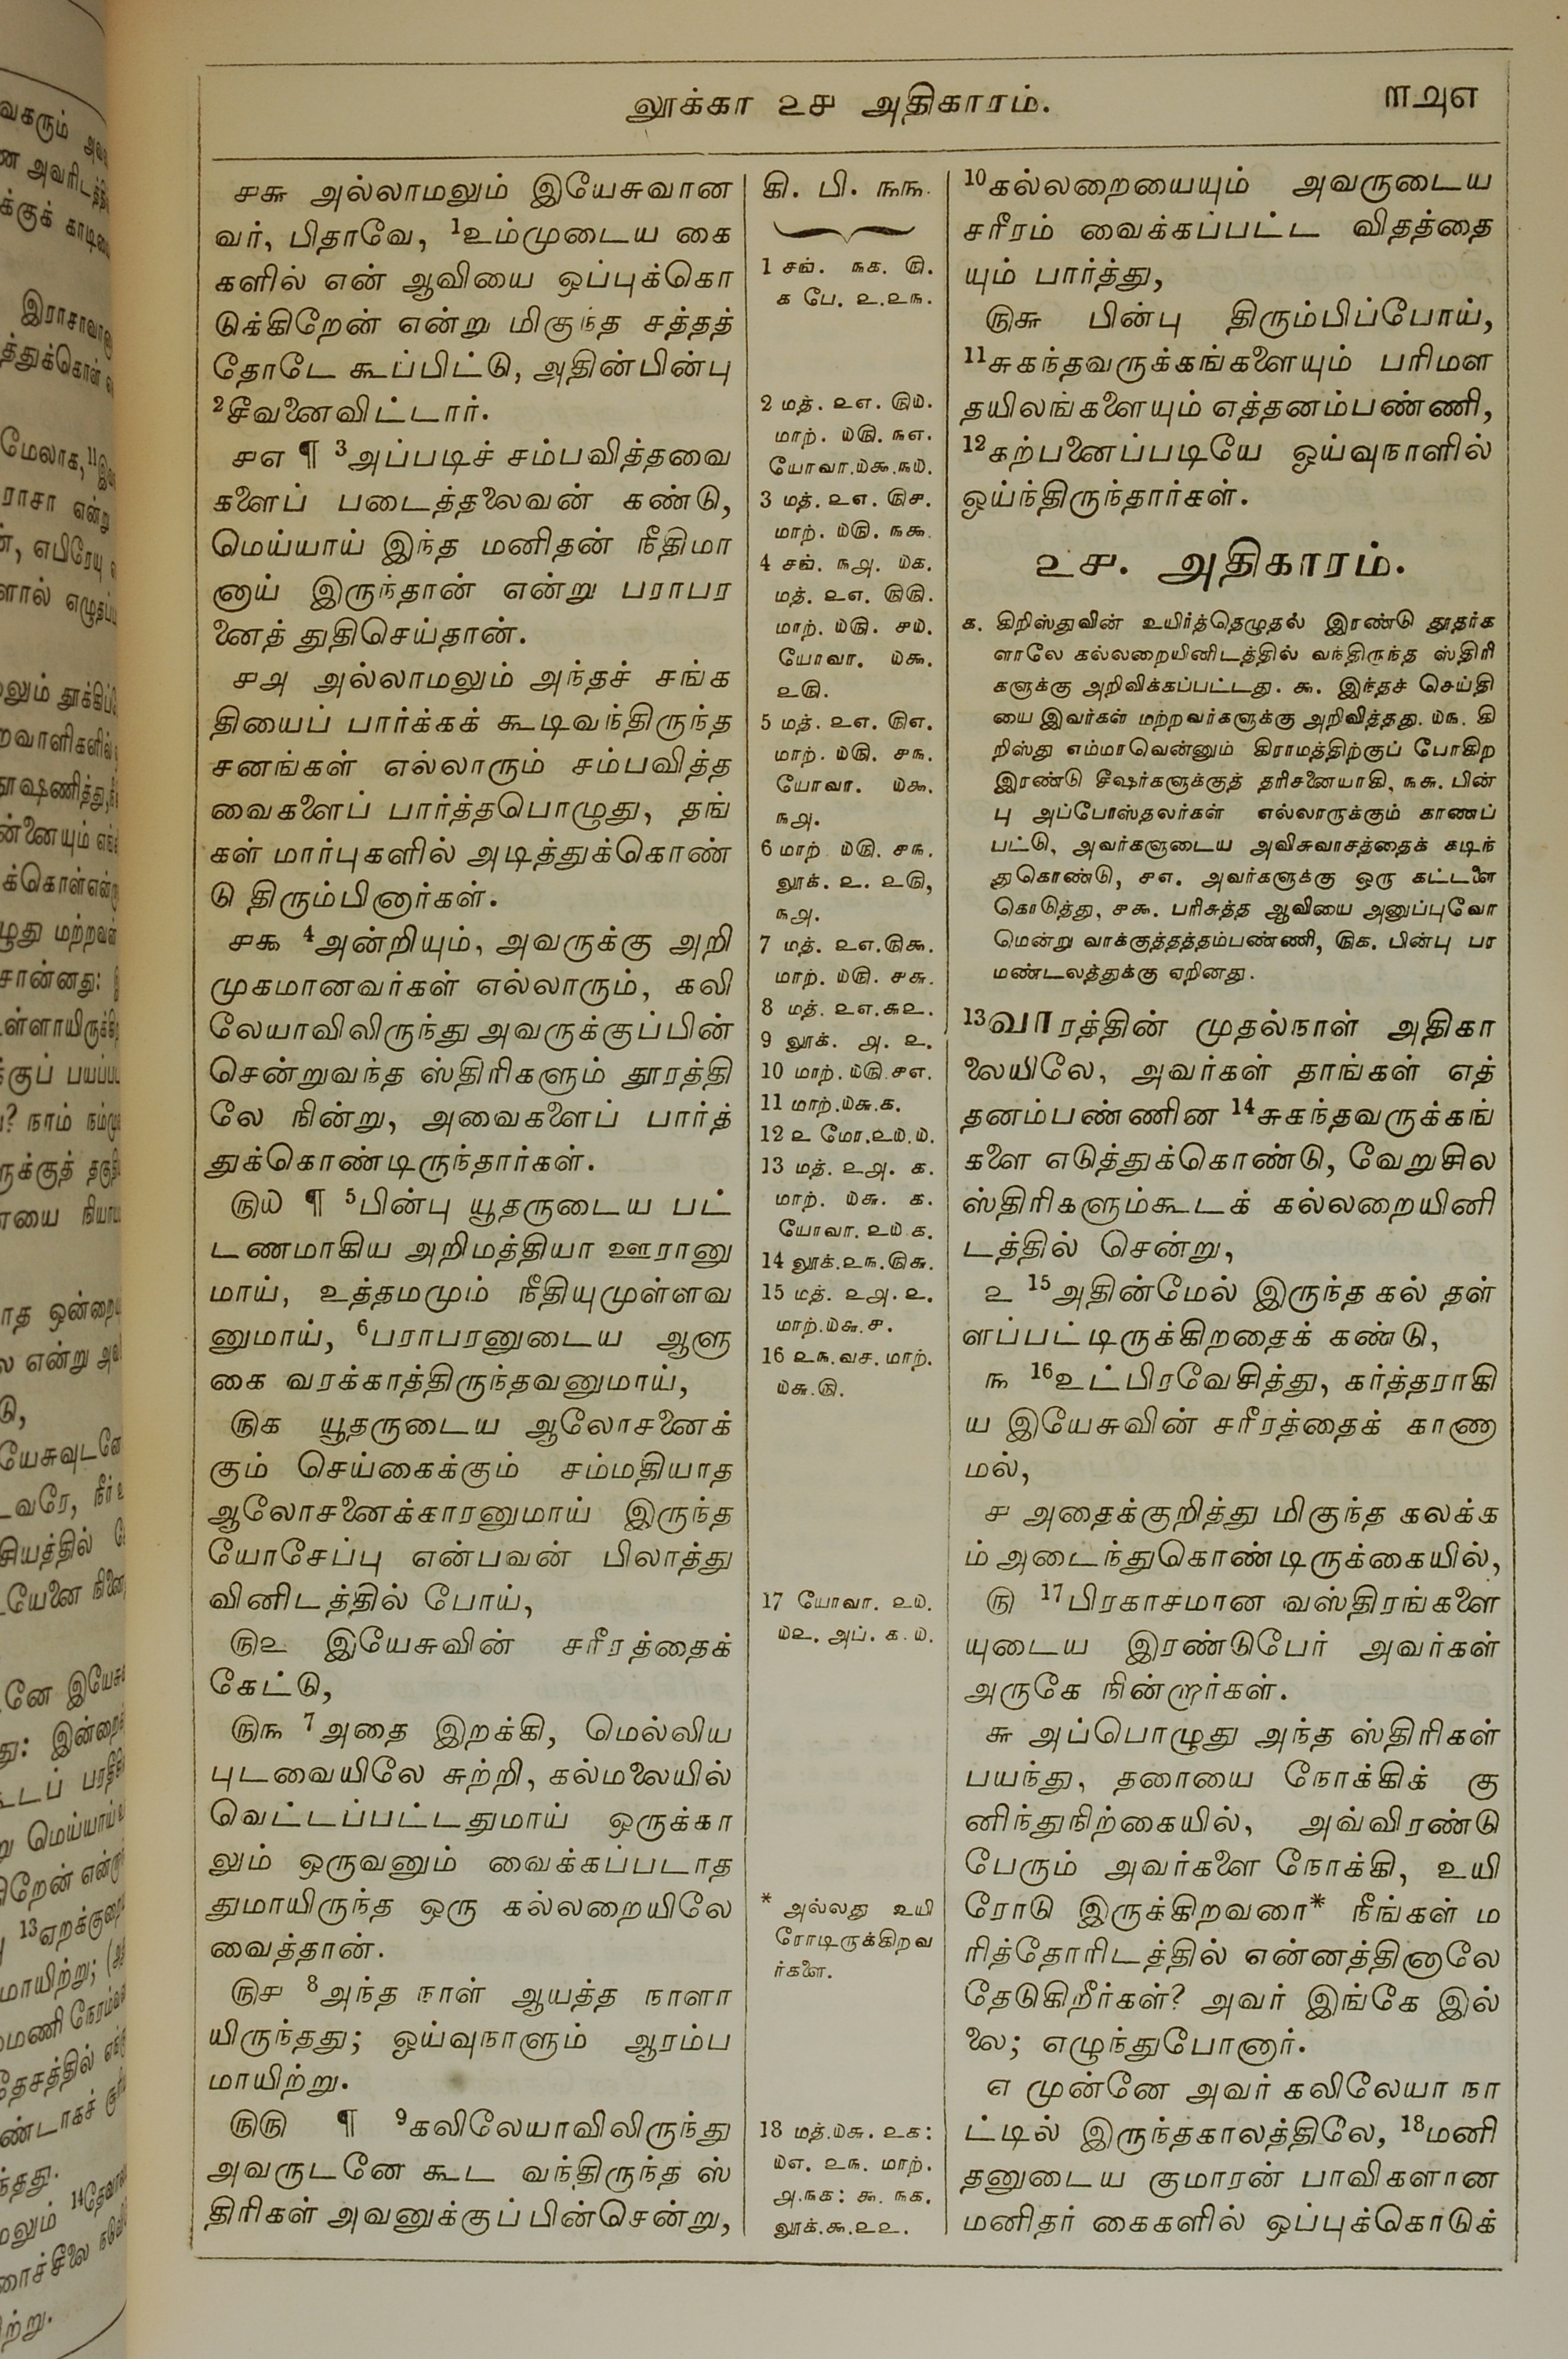 லூக்கா ௨௪ அதிகாரம்.
௱௮௭
௪௬ அல்லாமலும் இயேசுவான
வர், பிதாவே, 1உம்முடைய கை
களில் என் ஆவியை ஒப்புக்கொ
டுக்கிறேன் என்று மிகுந்த சத்தத்
தோடே கூப்பிட்டு, அதின்பின்பு
2சீவனைவிட்டார்.
௪௭ ¶ 3அப்படிச் சம்பவித்தவை
களைப் படைத்தலைவன் கண்டு,
மெய்யாய் இந்த மனிதன் நீதிமா
னாய் இருந்தான் என்று பராபர
னைத் துதிசெய்தான்.
௪௮ அல்லாமலும் அந்தச் சங்க
தியைப் பார்க்கக் கூடிவந்திருந்த
சனங்கள் எல்லாரும் சம்பவித்த
வைகளைப் பார்த்தபொழுது, தங்
கள் மார்புகளில் அடித்துக்கொண்
டு திரும்பினார்கள்.
௪௯ 4அன்றியும், அவருக்கு அறி
முகமானவர்கள் எல்லாரும், கலி
லேயாவிலிருந்து அவருக்குப்பின்
சென்றுவந்த ஸ்திரிகளும் தூரத்தி
லே நின்று, அவைகளைப் பார்த்
துக்கொண்டிருந்தார்கள்.
௫௰ ¶ 5பின்பு யூதருடைய பட்
டணமாகிய அறிமத்தியா ஊரானு
மாய், உத்தமமும் நீதியுமுள்ளவ
னுமாய், 6பராபரனுடைய ஆளு
கை வரக்காத்திருந்தவனுமாய்,
௫௧ யூதருடைய ஆலோசனைக்
கும் செய்கைக்கும் சம்மதியாத
ஆலோசனைக்காரனுமாய் இருந்த
யோசேப்பு என்பவன் பிலாத்து
வினிடத்தில் போய்,
௫௨ இயேசுவின் சரீரத்தைக்
கேட்டு,
௫௩ 7அதை இறக்கி, மெல்லிய
புடவையிலே சுற்றி, கல்மலையில்
வெட்டப்பட்டதுமாய் ஒருக்கா
லும் ஒருவனும் வைக்கப்படாத
துமாயிருந்த ஒரு கல்லறையிலே
வைத்தான்.
௫௪ 8அந்த நாள் ஆயத்த நாளா
யிருந்தது; ஓய்வுநாளும் ஆரம்ப
மாயிற்று.
௫௫ ¶ 9கலிலேயாவிலிருந்து
அவருடனே கூட வந்திருந்த ஸ்
திரிகள் அவனுக்குப் பின்சென்று,
கி. பி. ௩௩.
1 சங். ௩௧. ௫.
௧ பே. ௨.௨௩.
2 மத். ௨௭. ௫௰.
மாற். ௰௫. ௩௭.
யோவா.௰௯.௩௰.
3 மத். ௨௭. ௫௪.
மாற். ௰௫. ௩௯.
4 சங். ௩௮. ௰௧.
மத். ௨௭. ௫௫.
மாற். ௰௫. ௪௰.
யோவா. ௰௯.
௨௫.
5 மத். ௨௭. ௫௭.
மாற். ௰௫. ௪௩.
யோவா. ௰௯.
௩௮.
6 மாற் ௰௫. ௪௩.
லூக். ௨. ௨௫,
௩௮.
7 மத். ௨௭.௫௯.
மாற். ௰௫. ௪௬.
8 மத். ௨௭.௬௨.
9 லூக். ௮. ௨.
10 மாற். ௰௫.௪௭.
11 மாற்.௰௬.௧.
12 ௨ மோ.௨௰.௰.
13 மத். ௨௮. ௧.
மாற். ௰௬. ௧.
யோவா. ௨௰.௧.
14 லூக்.௨௩.௫௬.
15 மத். ௨௮. ௨.
மாற்.௰௬.௪.
16 ௨௩.வச. மாற்.
௰௬.௫.
17 யோவா. ௨௰.
௰௨. அப். ௧.௰.
* அல்லது உயி
ரோடிருக்கிறவ
ர்களை.
18 மத்.௰௬. ௨௧:
௰௭. ௨௩. மாற்.
௮.௩௧: ௯. ௩௧.
லூக்.௯.௨௨.
10கல்லறையையும் அவருடைய
சரீரம் வைக்கப்பட்ட விதத்தை
யும் பார்த்து,
௫௬ பின்பு திரும்பிப்போய்,
11சுகந்தவருக்கங்களையும் பரிமள
தயிலங்களையும் எத்தனம்பண்ணி,
12கற்பனைப்படியே ஓய்வுநாளில்
ஓய்ந்திருந்தார்கள்.
௨௪. அதிகாரம்.
௧. கிறிஸ்துவின் உயிர்த்தெழுதல் இரண்டு தூதர்க
ளாலே கல்லறையினிடத்தில் வந்திருந்த ஸ்திரி
களுக்கு அறிவிக்கப்பட்டது. ௯. இந்தச் செய்தி
யை இவர்கள் மற்றவர்களுக்கு அறிவித்தது. ௰௩. கி
றிஸ்து எம்மாவென்னும் கிராமத்திற்குப் போகிற
இரண்டு சீஷர்களுக்குத் தரிசனையாகி, ௩௬. பின்
பு அப்போஸ்தலர்கள் எல்லாருக்கும் காணப்
பட்டு, அவர்களுடைய அவிசுவாசத்தைக் கடிந்
துகொண்டு, ௪௭. அவர்களுக்கு ஒரு கட்டளை
கொடுத்து, ௪௯. பரிசுத்த ஆவியை அனுப்புவோ
மென்று வாக்குத்தத்தம்பண்ணி, ௫௧. பின்பு பர
மண்டலத்துக்கு ஏறினது.
13வாரத்தின் முதல்நாள் அதிகா
லையிலே, அவர்கள் தாங்கள் எத்
தனம்பண்ணின 14சுகந்தவருக்கங்
களை எடுத்துக்கொண்டு, வேறுசில
ஸ்திரிகளும்கூடக் கல்லறையினி
டத்தில் சென்று,
௨ 15அதின்மேல் இருந்த கல் தள்
ளப்பட்டிருக்கிறதைக் கண்டு,
௩ 16உட்பிரவேசித்து, கர்த்தராகி
ய இயேசுவின் சரீரத்தைக் காணா
மல்,
௪ அதைக்குறித்து மிகுந்த கலக்க
ம் அடைந்துகொண்டிருக்கையில்,
௫ 17பிரகாசமான வஸ்திரங்களை
யுடைய இரண்டுபேர் அவர்கள்
அருகே நின்றார்கள்.
௬ அப்பொழுது அந்த ஸ்திரிகள்
பயந்து, தரையை நோக்கிக் கு
னிந்துநிற்கையில், அவ்விரண்டு
பேரும் அவர்களை நோக்கி, உயி
ரோடு இருக்கிறவரை* நீங்கள் ம
ரித்தோரிடத்தில் என்னத்தினாலே
தேடுகிறீர்கள்? அவர் இங்கே இல்
லை; எழுந்துபோனார்.
௭ முன்னே அவர் கலிலேயா நா
ட்டில் இருந்தகாலத்திலே, 18மனி
தனுடைய குமாரன் பாவிகளான
மனிதர் கைகளில் ஒப்புக்கொடுக்